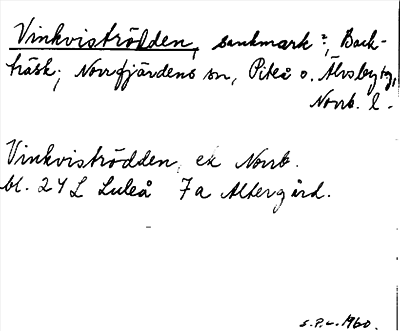 Vinkviströdden, sankmark?, Back-
träsk, Norrfjärdens sn, Piteå o. Älvsby tg,
Norrb. l.
Vinkviströdden, ek Norrb.
bl. 24 L Luleå 7a Altergård.
s.p.c. 1960.